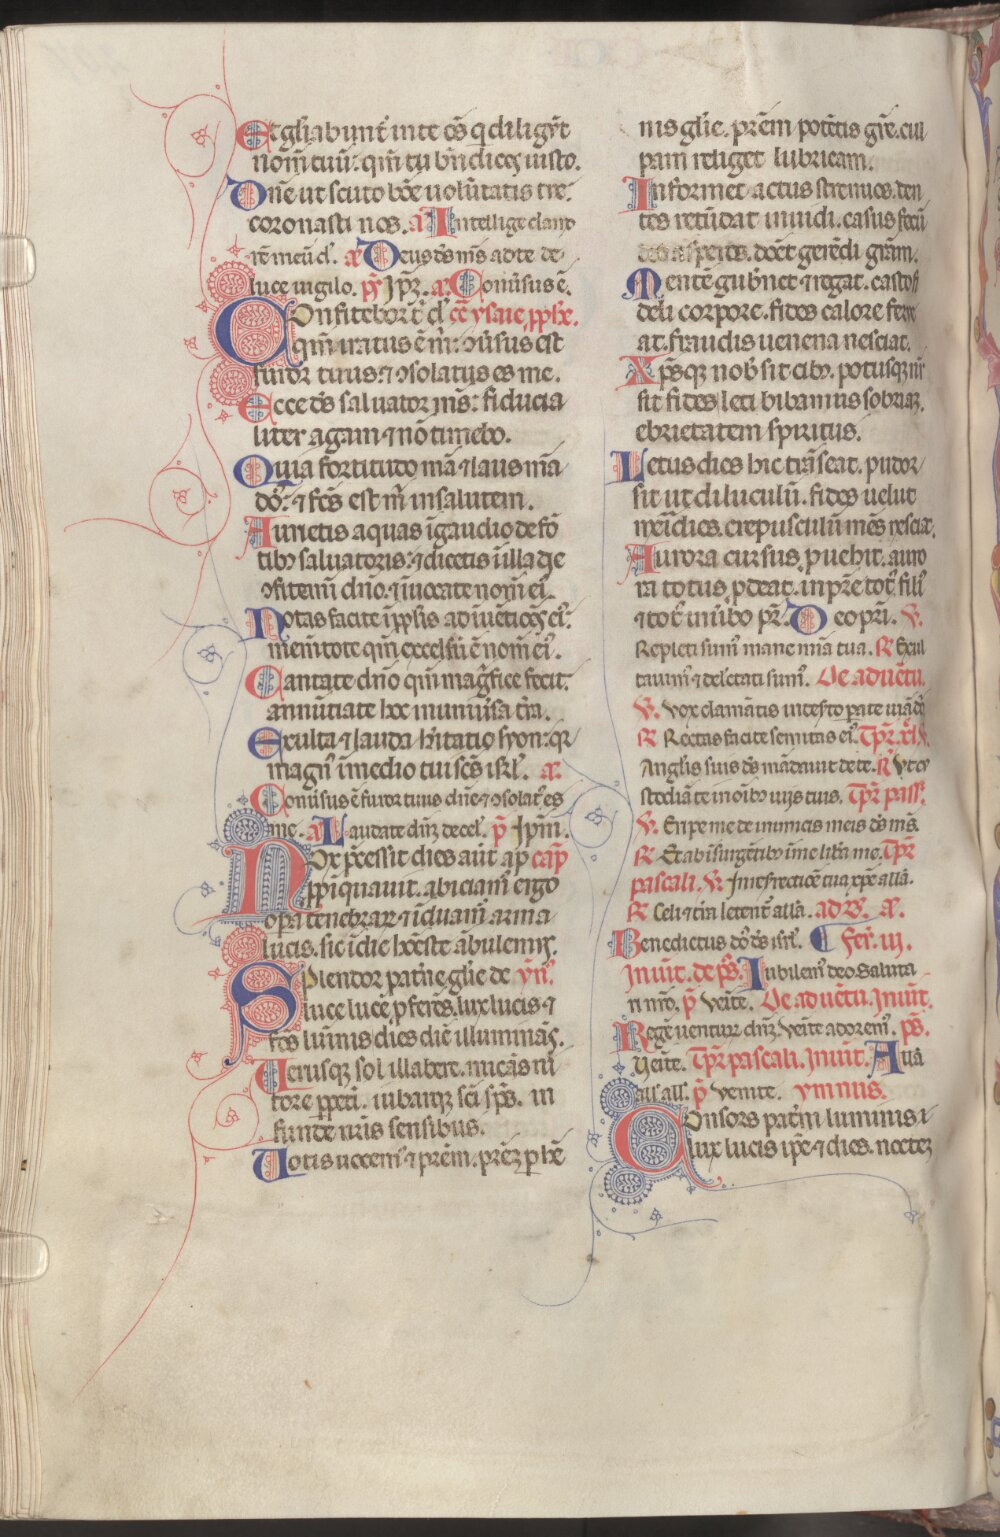 Et gl'iabunt' in te oēs q̄ diligūt
nom̄ tuū: qm̄ tu bn̄dices iusto.
Dn̄e ut scuto bōe uolūtatis tue:
coronasti nos. a Intellige clamo
rē meū d. a Deus ds ms ad te de
luce uigilo. p̄s Ips. a Conūsus ē.
Confitebor t' d' cē ysaie pph'e.
qm̄ iratus ē m': ↄūsus est
furor tuus ⁊ ↄsolatus es me.
Ecce ds saluator ms: fiducia
liter agam ⁊ nō timebo.
Quia fortitudo mā ⁊ laus mā
do': ⁊ fcs est m' in salutem.
Aurietis aquas ī gaudio de fō
tibꝫ saluatoris: ⁊ dicetis ī illa die
ↄfitem̄ dn̄o: ⁊ īuocate nom̄ ei'.
Notas facite ī pplis adīuētiōes ei':
mem̄tote qm̄ excelsū ē nom̄ ei'.
Cantate dn̄o qm̄ mag̅fice fecit:
annūtiate hoc in uniūsa t'ra.
Exulta ⁊ lauda h'itatio syon: qr
magn' ī medio tui scs isrl'. a
Conūsus ē furor tuus dn̄e ⁊ ↄsolat' es
me. a Laudate dn̄m de cel'. p̄ Ipm̄.
Nox p̄cessit dies aūt ap cap̄
p̄pīquauit. abiciam' ergo
opa tenebrarꝝ ⁊ īduam' arma
lucis. sic ī die hōeste ābulem'.
Splendor pat'ne gl'ie de ym̄.
luce lucē pferēs. lux lucis ⁊
fōs lūinis dies diē illuminās.
Uerusqꝫ sol illabere. micās ni
tore ppeti. iubarqꝫ sci sps. in
funde nr̄is sensibus.
Uotis uocem' ⁊ prēm. prēꝫ phē
nis gl'ie. prēm potētis gr̄e. cul
pam religet lubricam.
Informet actus strenuos. den
tes retūdat inuidi. casus secū
det asperos. donet gerēdi gr̄am.
Mentē gub'net ⁊ regat. casto fi
deli corpore. fides calore ferue
at. fraudis uenena nesciat.
Xp̄sqꝫ nob' sit cibꝰ. potusqꝫ nr̄
sit fides leti bibamus sobriaꝫ.
ebrietatem spiritus.
Letus dies hic trāseat. pudor
sit ut diluculū. fides uelut
meridies. crepusculū mēs nesciat.
Aurora cursus puehit. auro
ra totus pdeat. in pr̄e tot' fili'
⁊ tot' in ūbo pr'. Deo pr̄i. V.
Repleti sum' mane mīa tua. R Exul
tauim' ⁊ delectati sum'. De aduētu.
V. Vox clamātis in deserto parate uiā dn̄i
R Rectas facite semitas ei'. Tp̄r xl'. V.
Anglis suis ds mādauit de te. R Ut cu
stodiāt te in oībꝫ uijs tuis. Tp̄r pass'.
V. Eripe me de inimicis meis ds ms.
R Et ab īsurgētibꝫ ī me lib'a me. Tp̄r
pascali. V. In resrectiōe tua xp̄e all'a.
R Celi ⁊ t'ra letent' all'a. ad B̄. a.
Benedictus dō ds isrl'. Fer'. iij.
Inuit. de ps. Iubilem' deo saluta
ri nr̄o. p̄ Venite. De aduētu. Inuit.
Regē uenturꝝ dn̄m. Venite adorem'. ps.
Uenite. Tp̄r pascali. Inuit. All'a
all' all'. p̄ Venite. ymnus.
Consors pat'ni luminis.
lux lucis ipe ⁊ dies. noctez